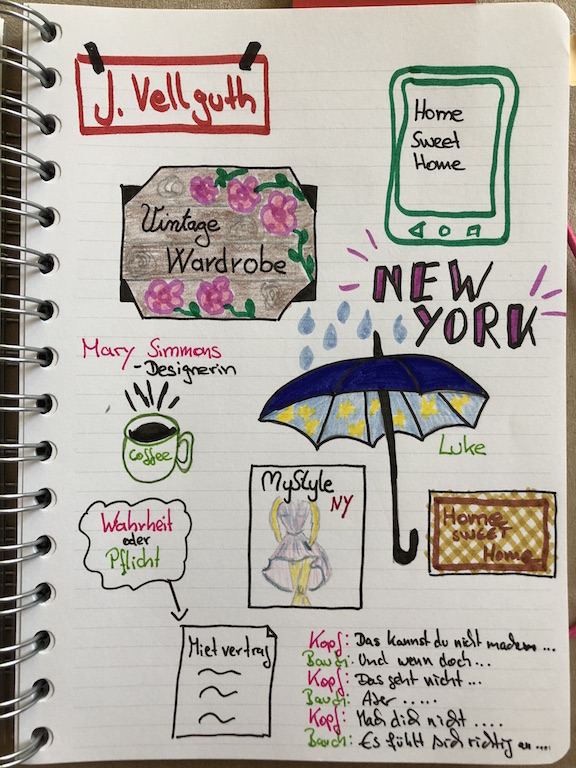 J. Vellguth
Home
Sweet
Home
Vintage
Wardrobe
NEW
YORK
Mary Simmons
-Designerin
coffee
Luke
MyStyle
NY
Home
SWEET
Home
Wahrheit
oder
Pflicht
Mietvertrag
Kopf: Das kannst du nicht machen ...
Bauch: Und wenn doch...
Kopf: Das geht nicht ...
Bauch: Aber .....
Kopf: Mach dich nicht ....
Bauch: Es fühlt sich richtig an ....